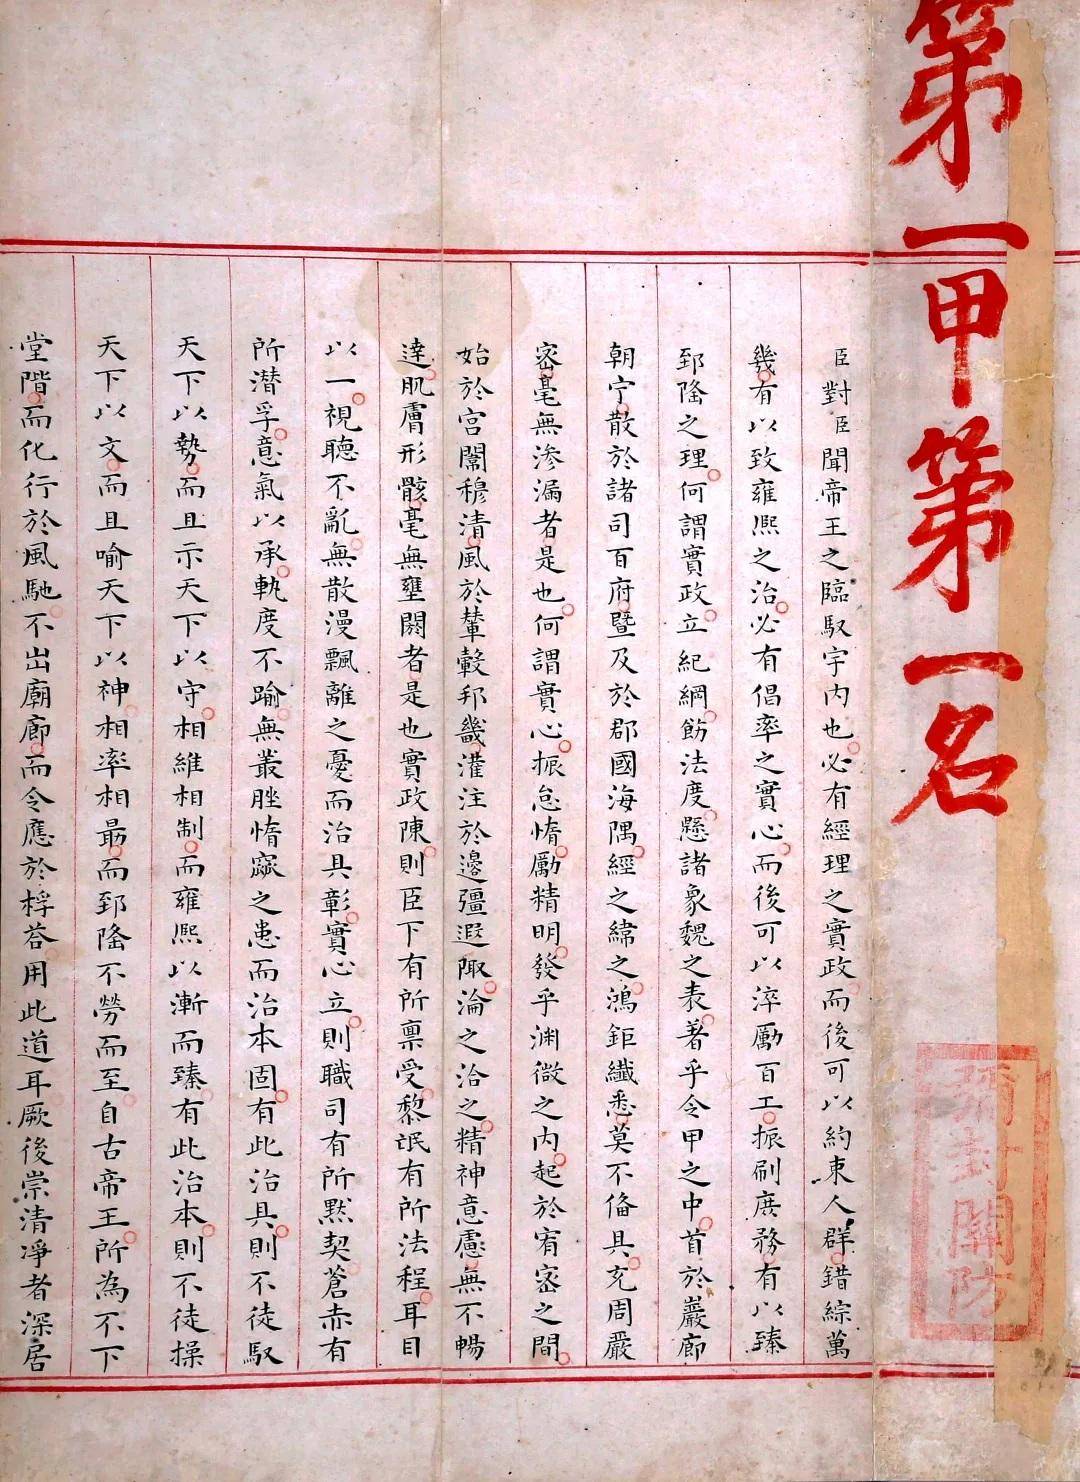 第一甲第一名
彌封關防
臣對臣聞帝王之臨馭宇內也必有經理之實政而後可以約束人群錯綜萬
幾有以致雍熙之治必有倡率之實心而後可以淬勵百工振刷庶務有以臻
郅隆之理何謂實政立紀綱飭法度懸諸象魏之表著乎令甲之中首於巖廊
朝宁散於諸司百府暨及於郡國海隅經之緯之鴻鉅纖悉莫不備具充周嚴
密毫無滲漏者是也何謂實心振怠惰勵精明發乎淵微之內起於宥密之間
始於宮闈穆清風於輦轂邦畿灌注於邊疆遐陬淪之洽之精神意慮無不暢
達肌膚形骸毫無壅閼者是也實政陳則臣下有所稟受黎氓有所法程耳目
以一視聽不亂無散漫飄離之憂而治具彰實心立則職司有所默契蒼赤有
所潛孚意氣以承軌度不踰無叢脞惰窳之患而治本固有此治具則不徒馭
天下以勢而且示天下以守相維相制而雍熙以漸而臻有此治本則不徒操
天下以文而且喻天下以神相率相勗而郅隆不勞而至自古帝王所為不下
堂階而化行於風馳不出廟廊而令應於桴答用此道耳厥後崇清凈者深居